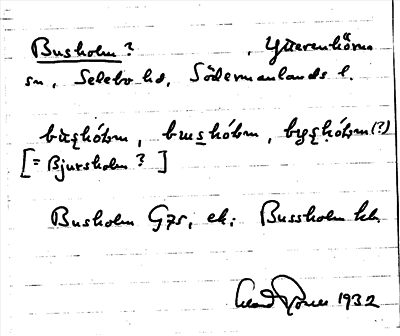 Busholm? , Ytterenhörna
sn, Selebo hd, Södermanlands l.
bʉshólm, bʉshólm, byshólm(?)
[= Bjursholm?]
Busholm G7s, ek; Bussholm kb
1932